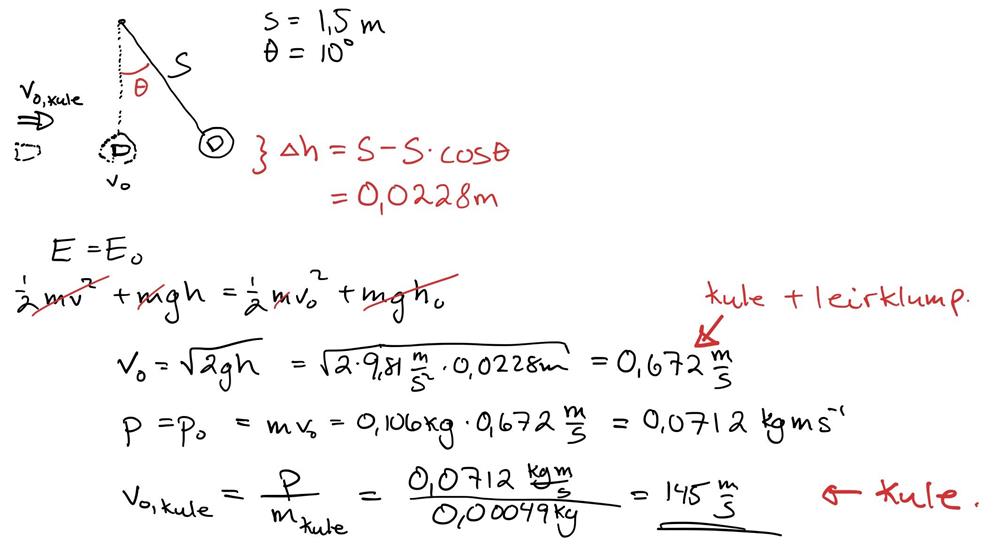 S = 1,5 m
θ = 10°
S
θ
v₀,kule
⇒
D
D
D
v₀
} Δh = S - S · cosθ
= 0,0228m
E = E₀
½mv² + mgh = ½mv₀² + mgh₀
kule + leirklump.
v₀ = √2gh = √2·9,81 m/s² · 0,0228m = 0,672 m/s
p = p₀ = mv₀ = 0,106kg · 0,672 m/s = 0,0712 kgms⁻¹
v₀,kule = p/m_kule = 0,0712 kgm/s / 0,00049kg = 145 m/s ← kule.